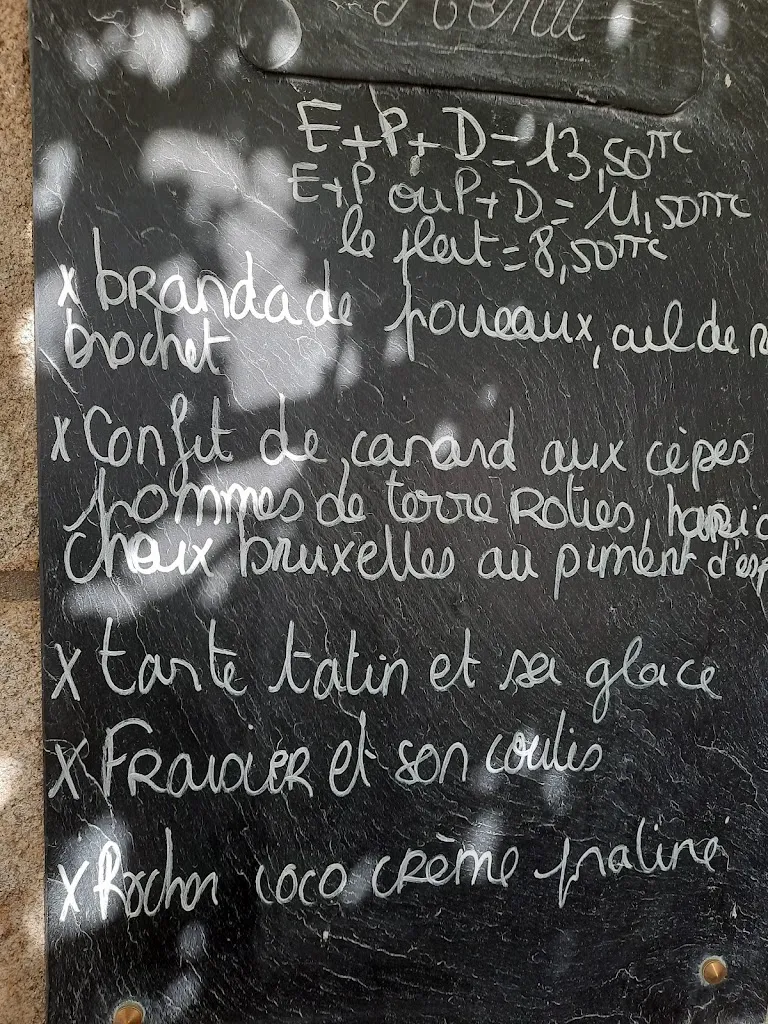 Menu
E+P+D=13,50TTC
E+P ou P+D=11,50TTC
le plat=8,50TTC
x brandade poireaux, ail de
brochet
x Confit de canard aux cèpes
pommes de terre Roties,
choux bruxelles au piment d'esp
x tarte tatin et sa glace
x FRAISIER et son coulis
x Rocher coco crème praliné